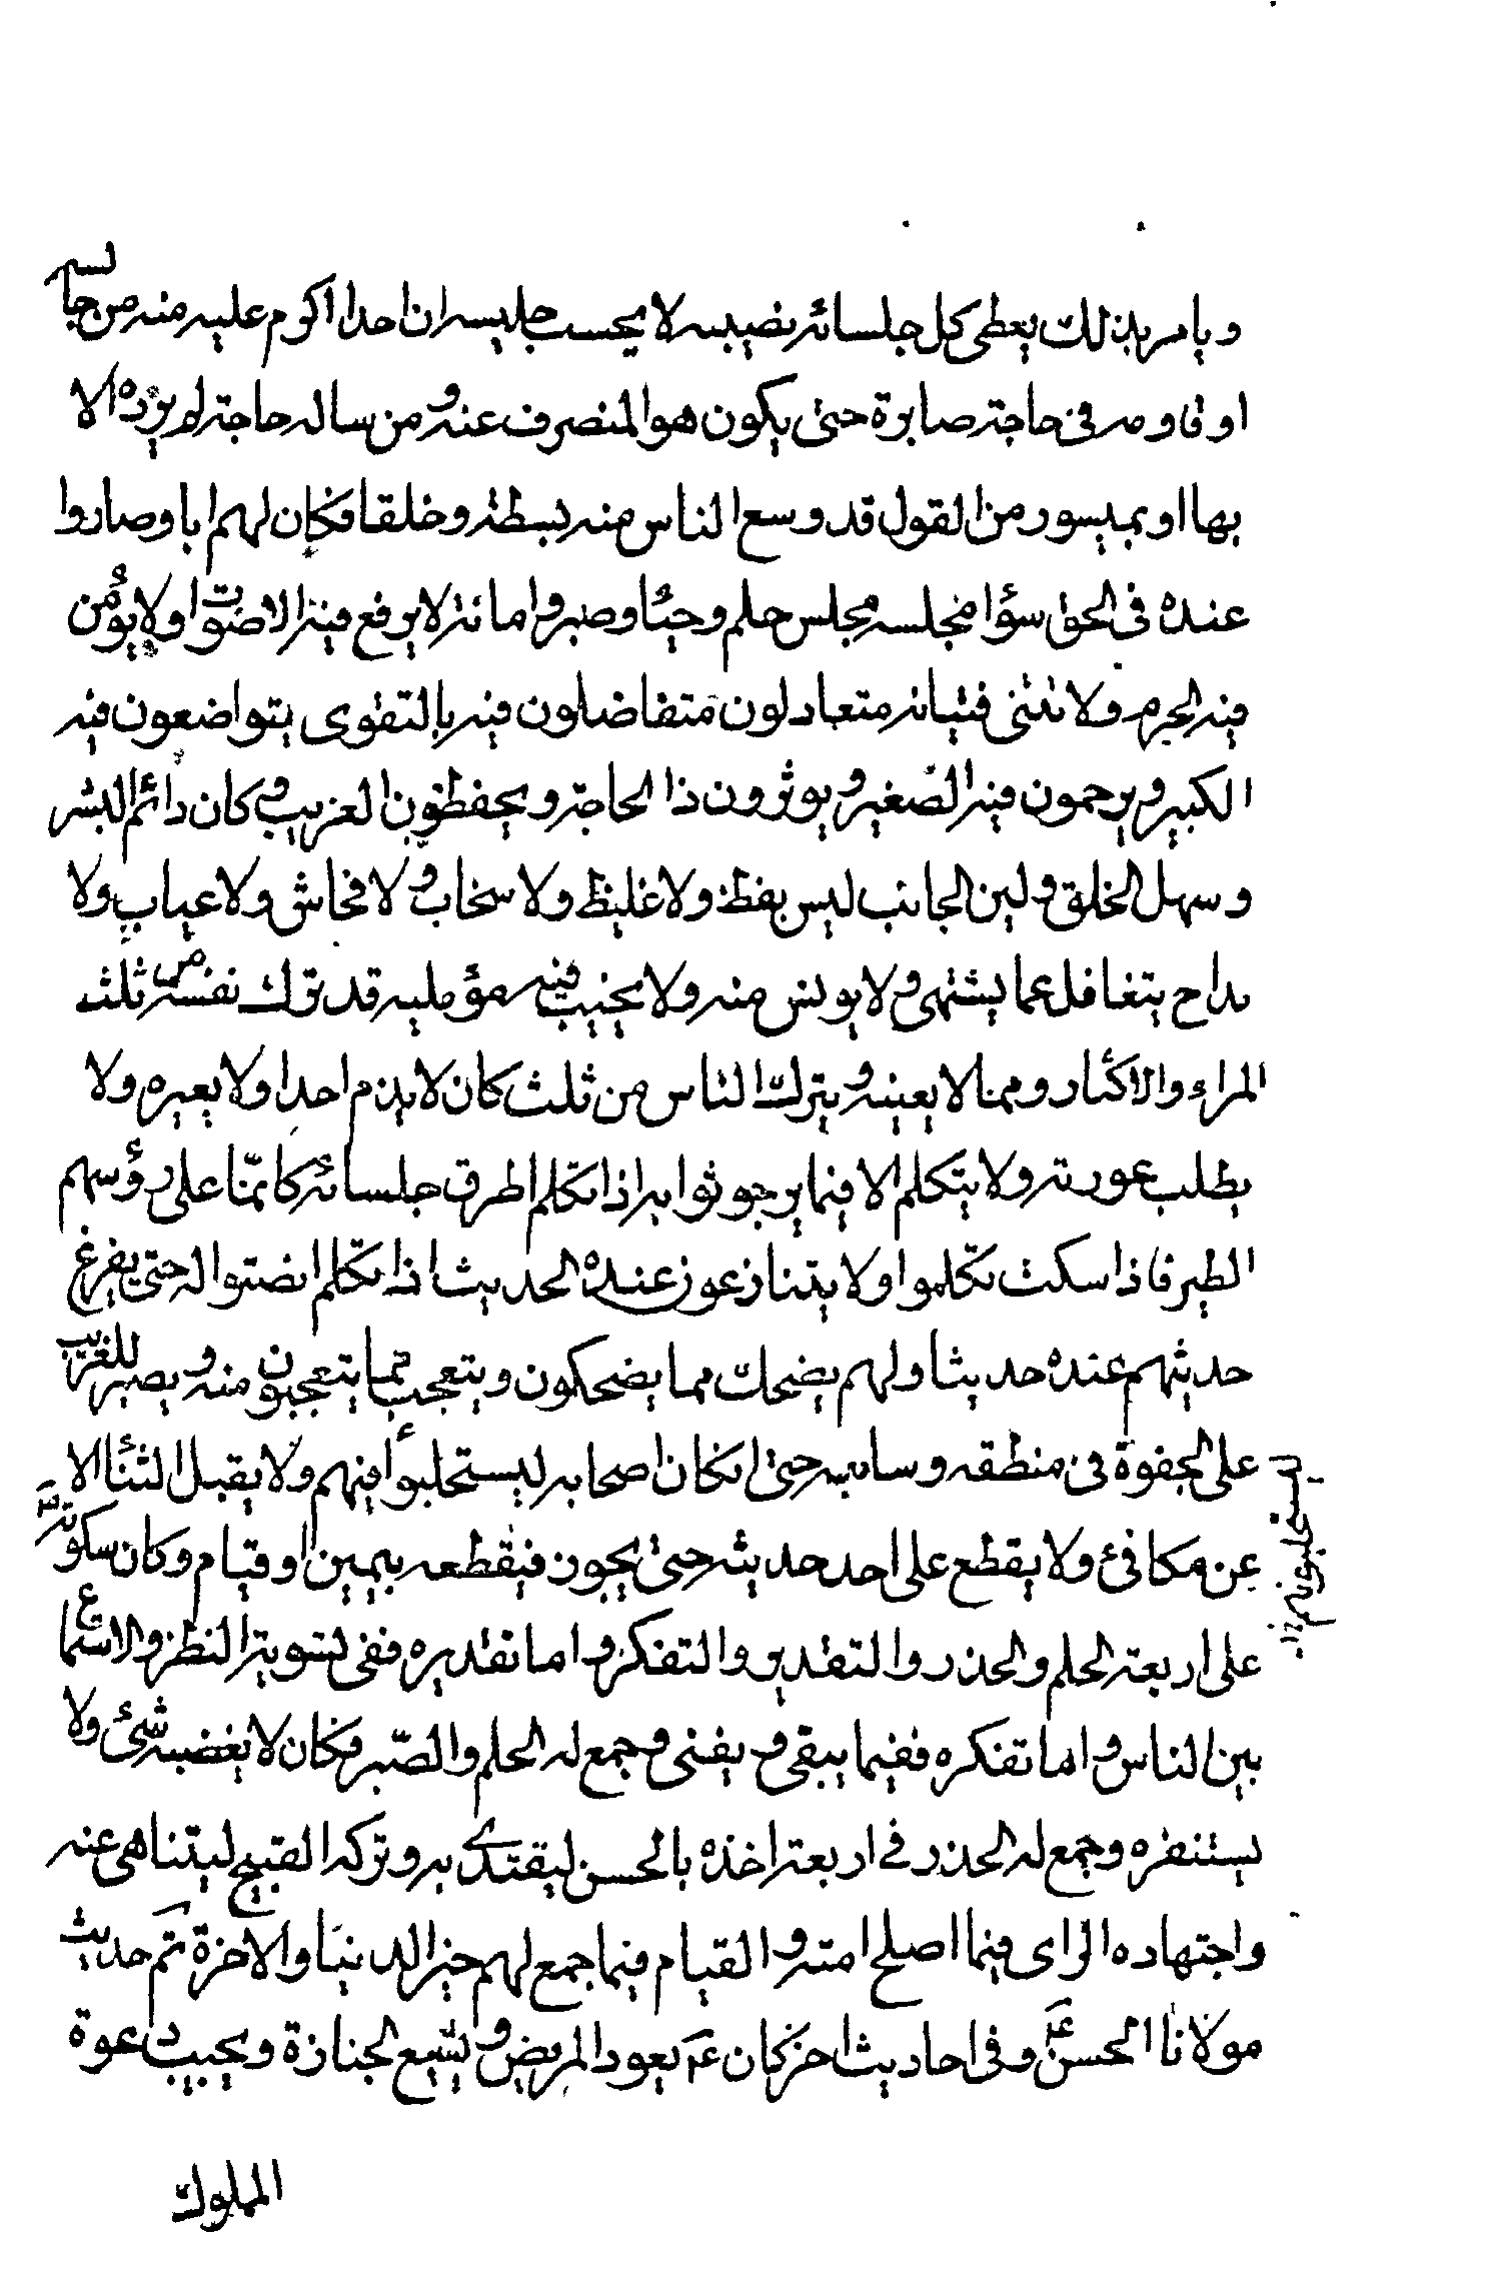 ويامر بذلك يعطى كل جلسائه نصيبه لا يحسب جليسه ان احدا اكرم عليه منه من جالسه
او قاومه في حاجته صابرة حتى يكون هو المنصرف عنه ومن ساله حاجته لم يرده الا
بها او بميسور من القول قد وسع الناس منه بسطة وخلقا فكان لهم ابا وصاروا
عنده في الحق سؤا مجلسه مجلس حلم وحيا وصبر وامانة لا يرفع فيه الاصوات ولا يؤمن
فيه الحرم ولا تنثى فتياته متعادلون متفاضلون فيه بالتقوى يتواضعون فيه
الكبير ويرحمون فيه الصغير ويوثرون ذا الحاجة ويحفظون الغريب وكان دائم البشر
وسهل الخلق ولين الجانب ليس بفظ ولا غليظ ولا سخاب ولا فحاش ولا عياب ولا
مداح يتغافل عما يشتهى ولا يويس منه ولا يخيب فيه مؤمليه قد ترك نفسه من ثلث
المراء والاكثار ومما لا يعينه ويترك الناس من ثلث كان لا يذم احدا ولا يعيره ولا
يطلب عورته ولا يتكلم الا فيما يرجو ثوابه اذا تكلم اطرق جلسائه كانما على رؤسهم
الطير فاذا سكت تكلموا ولا يتنازعون عنده الحديث اذا تكلم انصتوا له حتى يفرغ
حديثهم عنده حديثا ولهم يضحك مما يضحكون ويتعجب مما يتعجبون منه ويصبر للغريب
على الجفوة في منطقه حتى ان كان اصحابه ليستحلبوا فيهم ولا يقبل الثنا الا
عن مكافئ ولا يقطع على احد حديثه حتى يجوز فيقطعه بيمين او قيام وكان سكوته
على اربعة الحلم والحذر والتقدير والتفكر واما تقديره ففى تسوية النظر والاستماع
بين الناس واما تفكره ففيما يبقى ويفنى وجمع له الحلم والصبر فكان لا يغضبه شئ ولا
يستنفره وجمع له الحذر في اربعة اخذه بالحسن ليقتدى به وتركه القبيح ليتناهى عنه
واجتهاده الراى فيما اصلح امته والقيام فيما جمع لهم خير الدنيا والاخرة تم حديث
مولانا الحسن ع م وفى احاديث اخر كان ع م يعود المريض ويشيع الجنازة ويجيب دعوة
المملوك